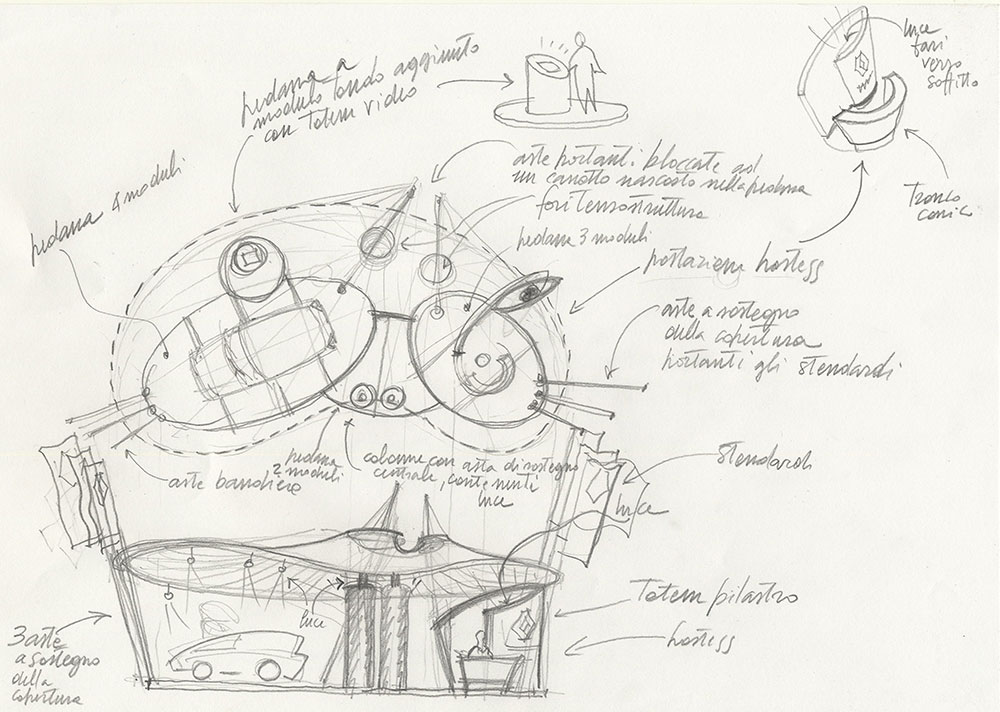 pedana a
modulo tondo aggiunto
con totem video
luce
fari
verso
soffitto
tronco
conico
aste portanti bloccate ad
un canotto nascosto nella pedana
fori tensostruttura
pedana 4 moduli
pedana 3 moduli
postazioni hostess
aste a sostegno
della copertura
portanti gli stendardi
aste bandiere
pedana
2 moduli
colonne con asta di sostegno
centrale, contenenti
luce
stendardi
luce
luce
totem pilastro
hostess
3 aste
a sostegno
della
copertura